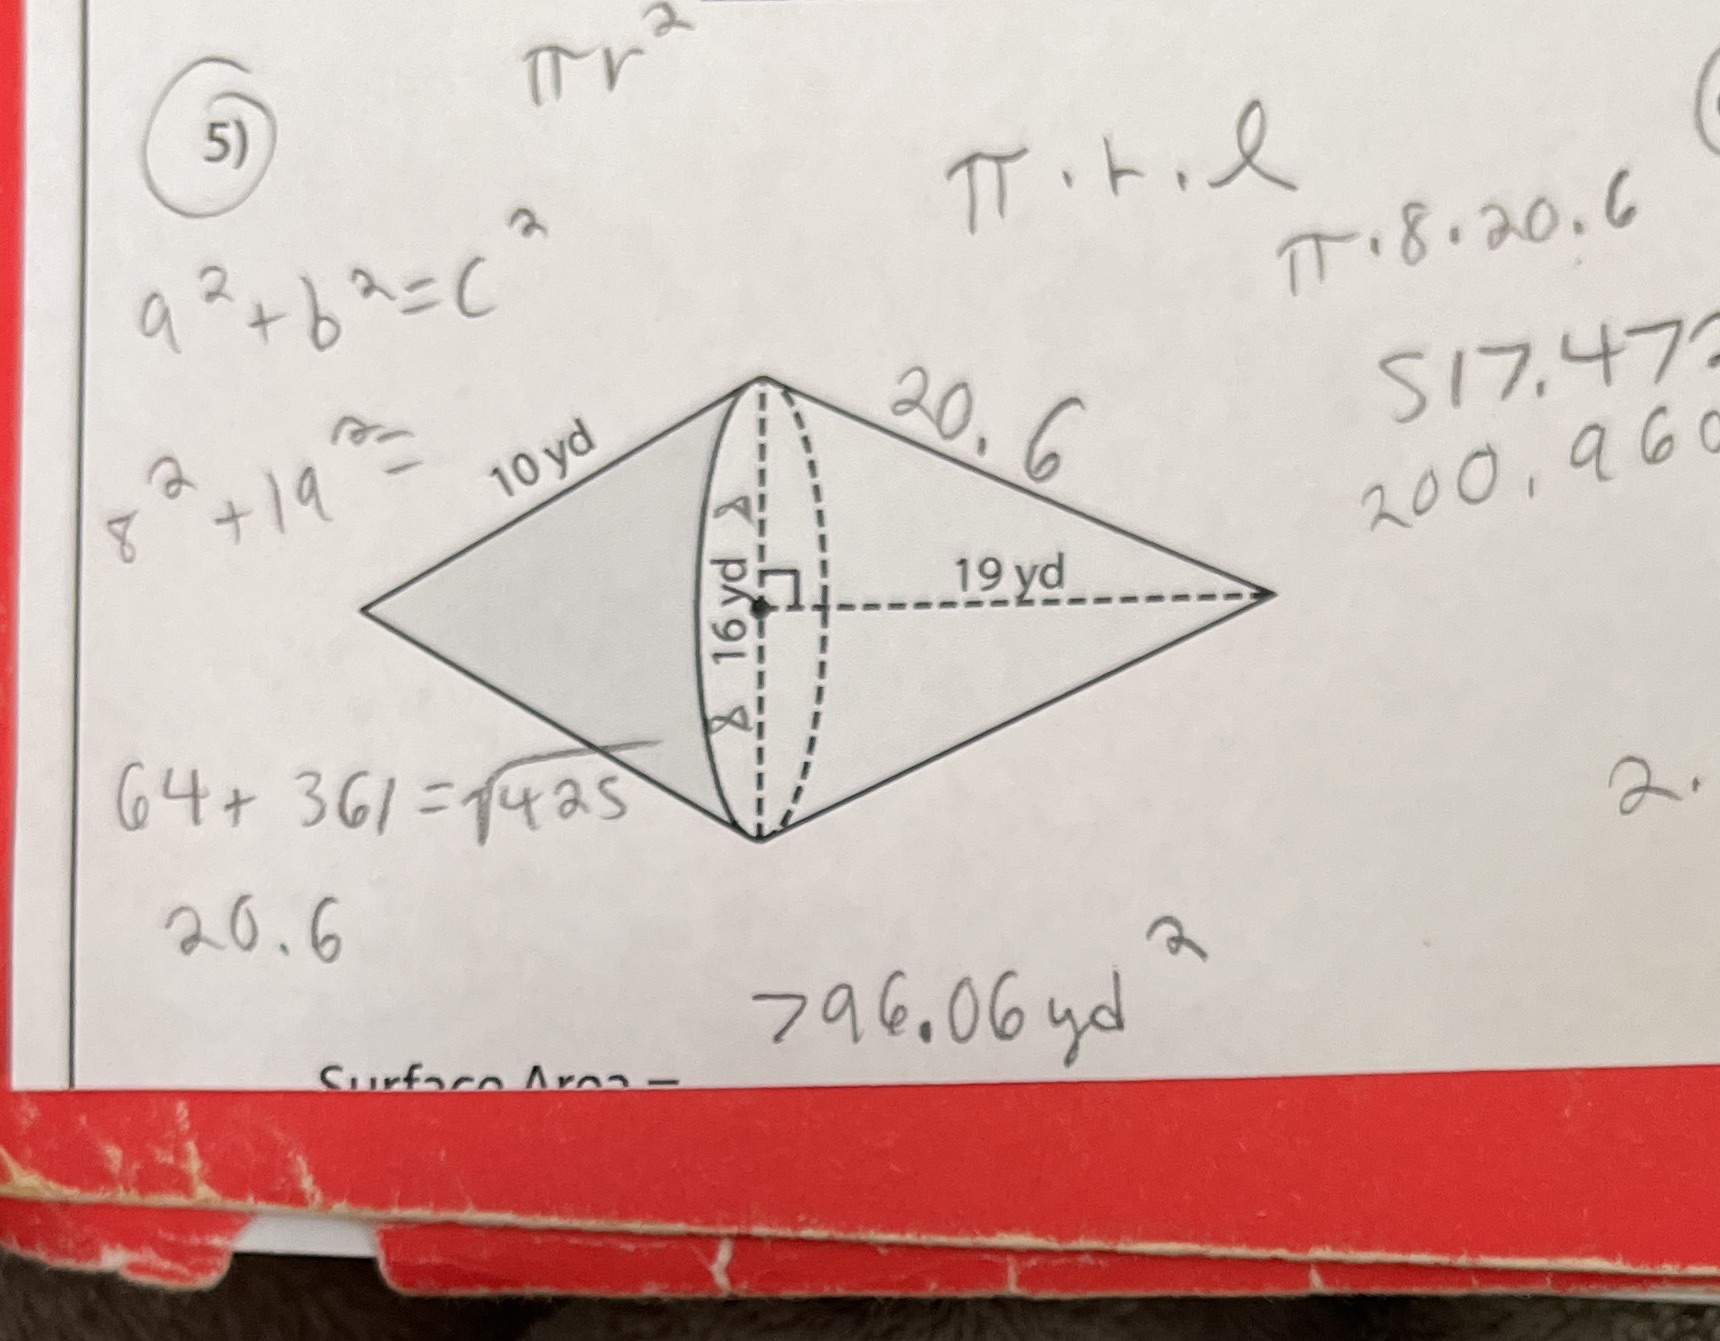 πr²
5)
π · r · l
π · 8 · 20.6
a² + b² = c²
517.47
200.960
20.6
10 yd
8² + 19² =
8
19 yd
16 yd
8
64 + 361 = √425
2.
20.6
796.06 yd²
Surface Area =